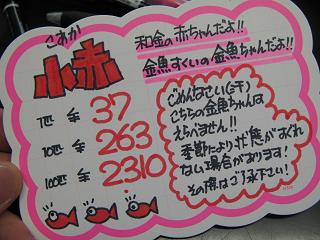 こあか
小赤
和金の赤ちゃんだよ!!
金魚すくいの金魚ちゃんだよ!!
1匹 ¥37
10匹 ¥263
100匹 ¥2310
ごめんなさい(汗)
こちらの金魚ちゃんは
えらべません!!
季節により状態がすぐれ
ない場合があります!
その際はご了承下さい!